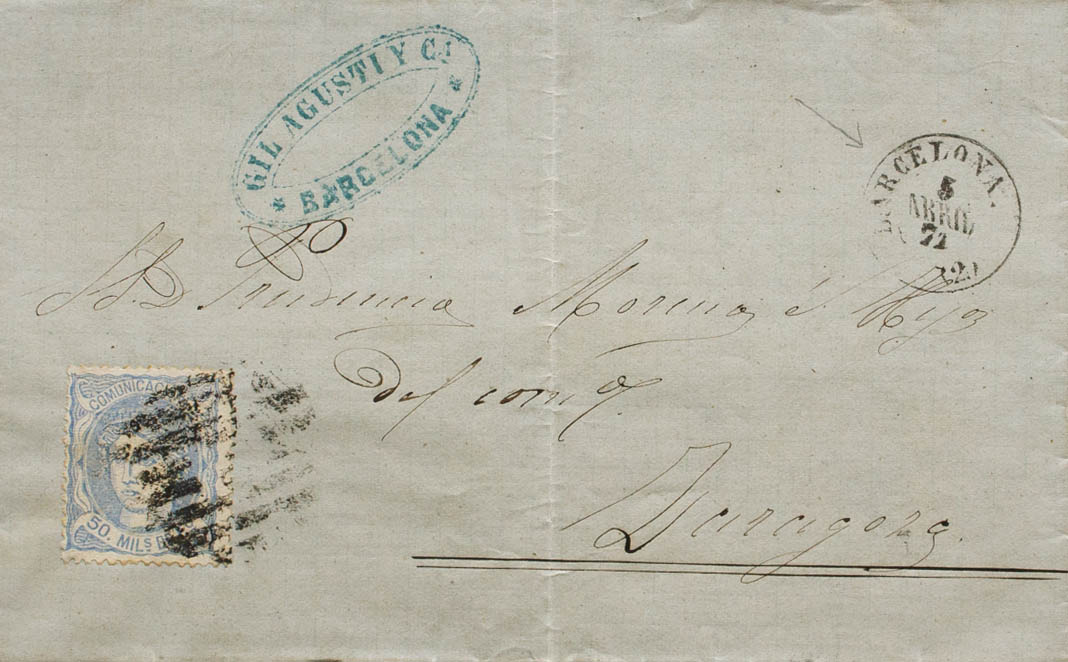 GIL AGUSTI Y Cª
* BARCELONA *
BARCELONA.
5
ABRIL
71
(2)
S. D. Prudencia Moreno é Hijo
del com.º
Zaragoza.
COMUNICAC
50. MILS